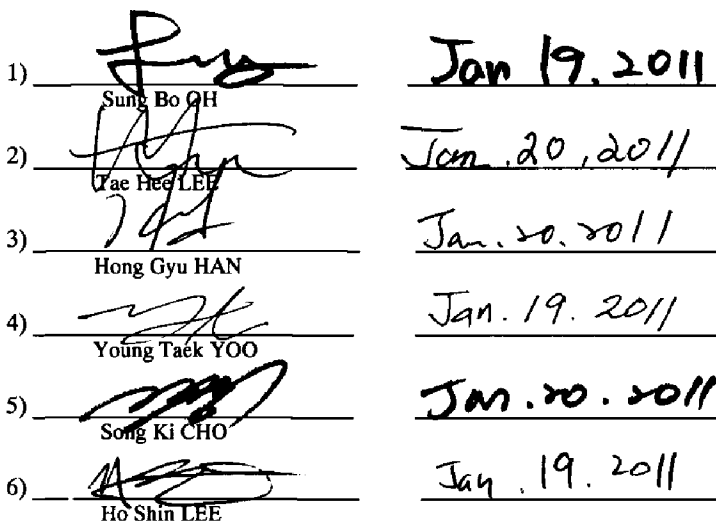 1) Jan 19. 2011
Sung Bo OH
2) Jan. 20, 2011
Tae Hee LEE
3) Jan. 20. 2011
Hong Gyu HAN
4) Jan. 19. 2011
Young Taek YOO
5) Jan. 20. 2011
Song Ki CHO
6) Jan. 19. 2011
Ho Shin LEE